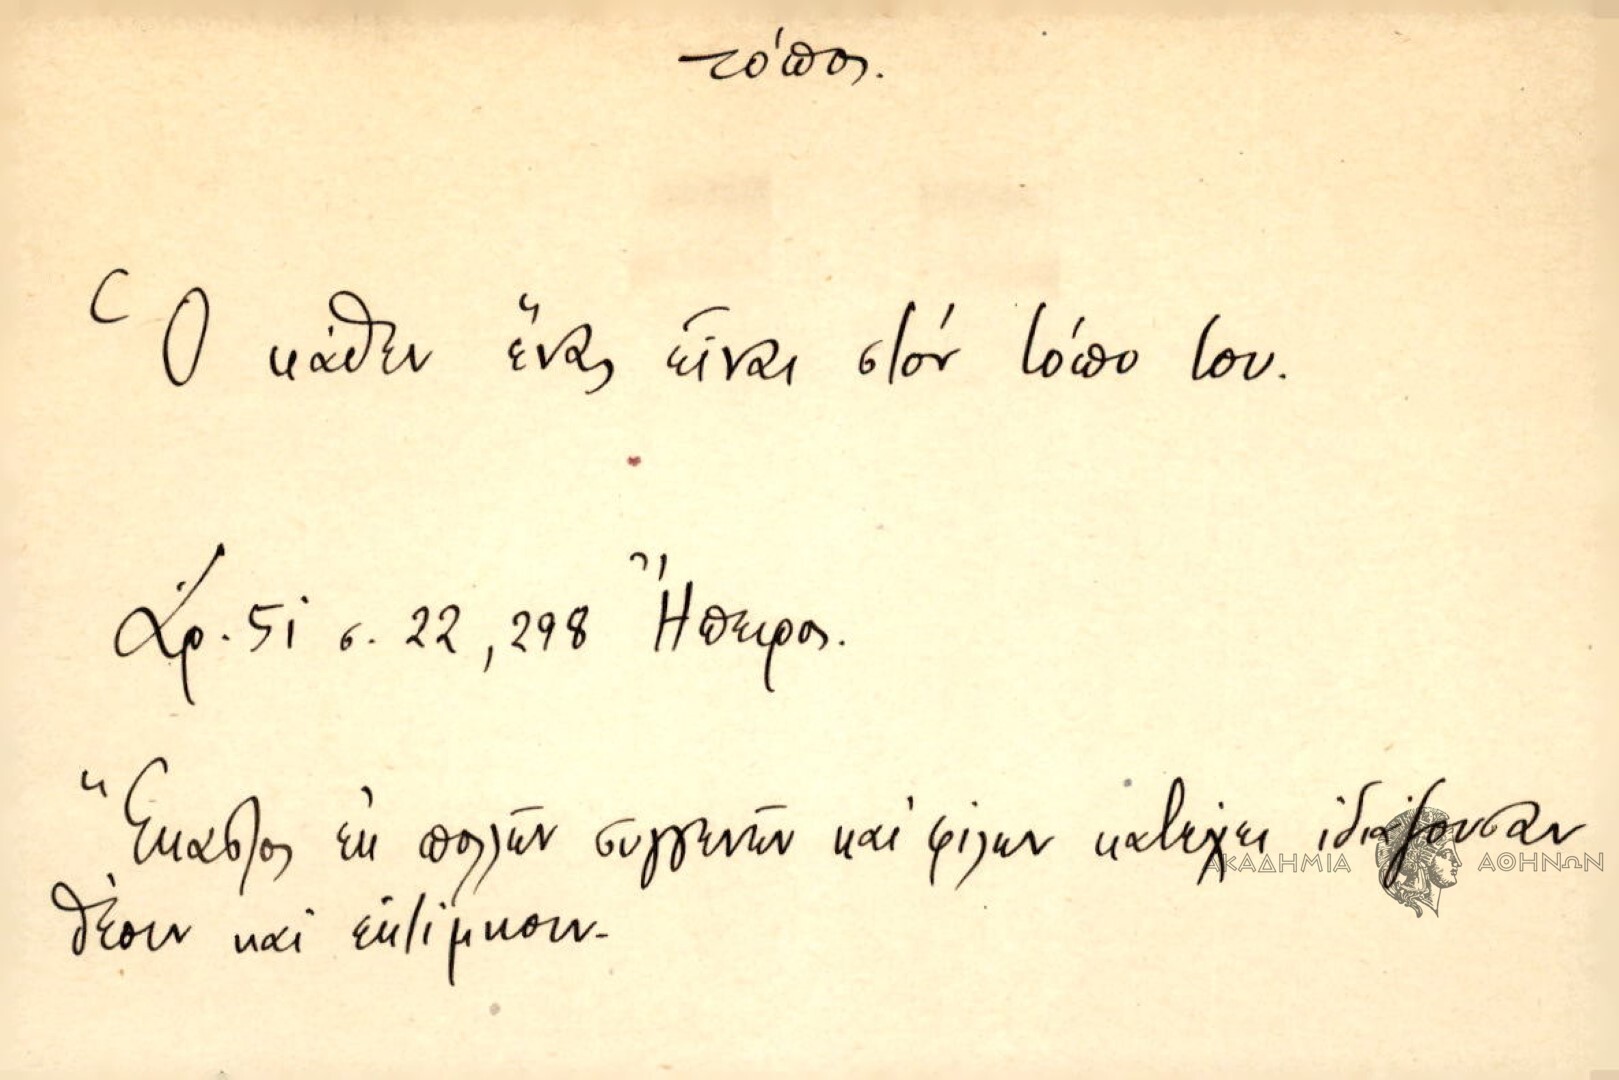 τόπος.
Ὁ κάθεν ἕνας εἶναι στόν τόπο του.
Ἀρ. 51 σ. 22, 298 Ἤπειρος.
Ἕκαστος ἐκ πολλῶν συγγενῶν καί φίλων κατέχει ἰδιάζουσαν
θέσιν καί ἐκτίμησιν.
ΑΚΑΔΗΜΙΑ ΑΘΗΝΩΝ